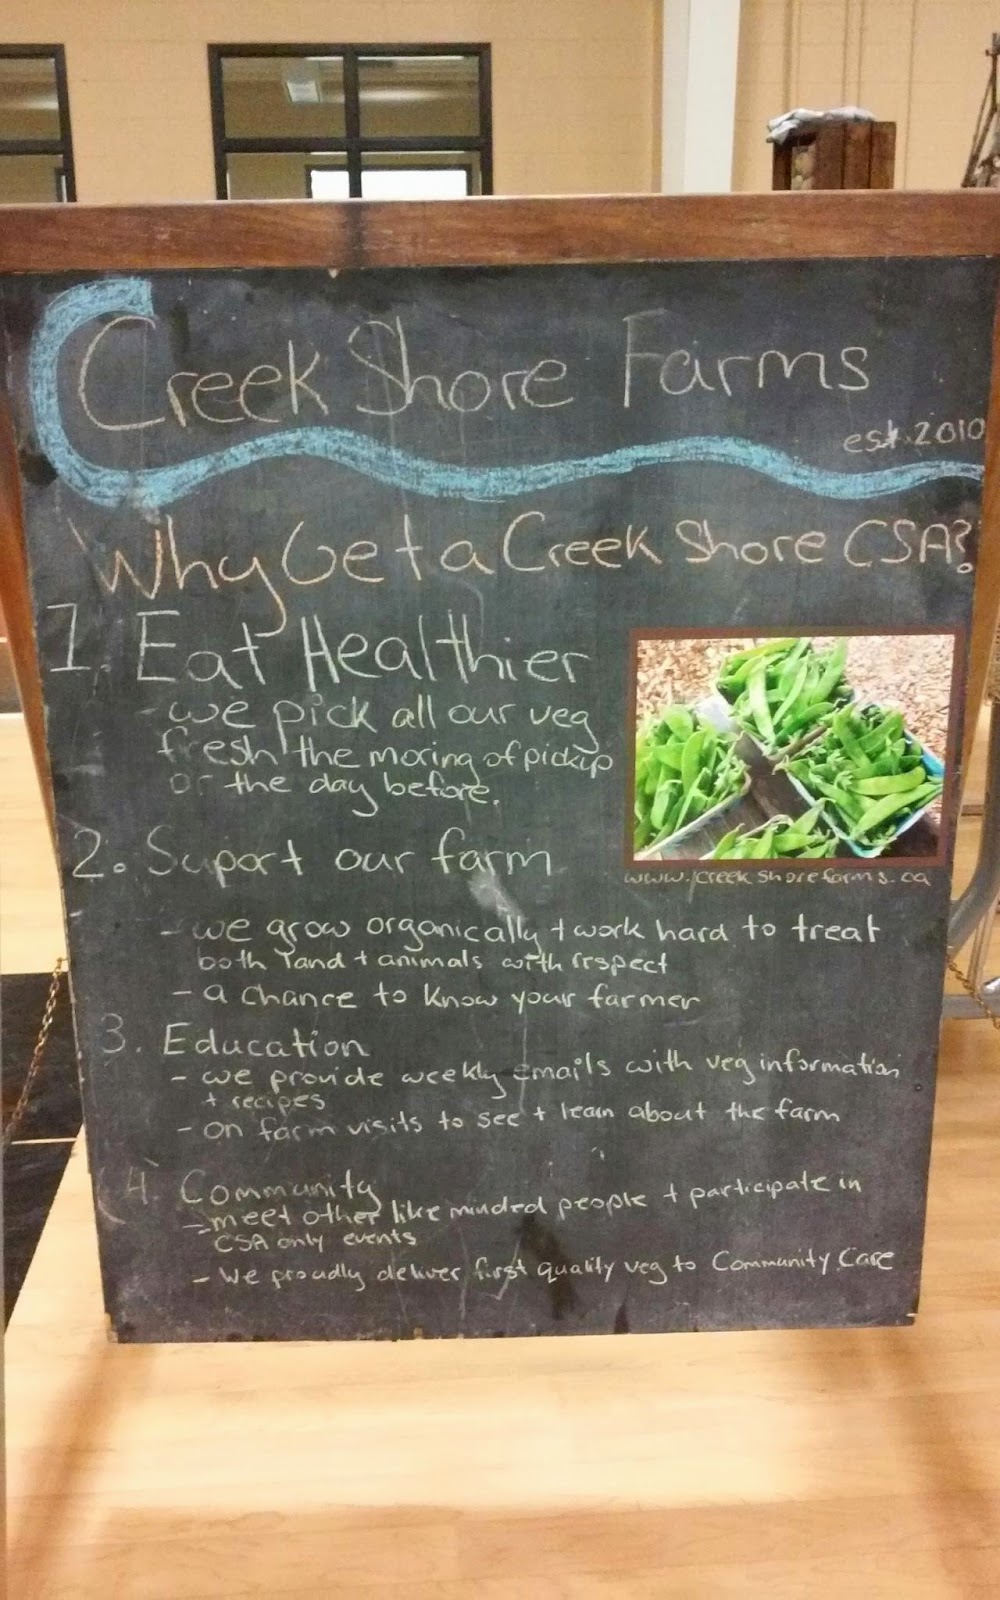 Creek Shore Farms
est. 2010
Why Get a Creek Shore CSA?
1. Eat Healthier
- we pick all our veg
fresh the moring of pickup
or the day before.
www.creekshorefarms.ca
2. Suport our farm
- we grow organically + work hard to treat
both land + animals with respect
- a chance to know your farmer
3. Education
- we provide weekly emails with veg information
+ recipes
- on farm visits to see + learn about the farm
4. Community
- meet other like minded people + participate in
CSA only events
- We proudly deliver first quality veg to Community Care